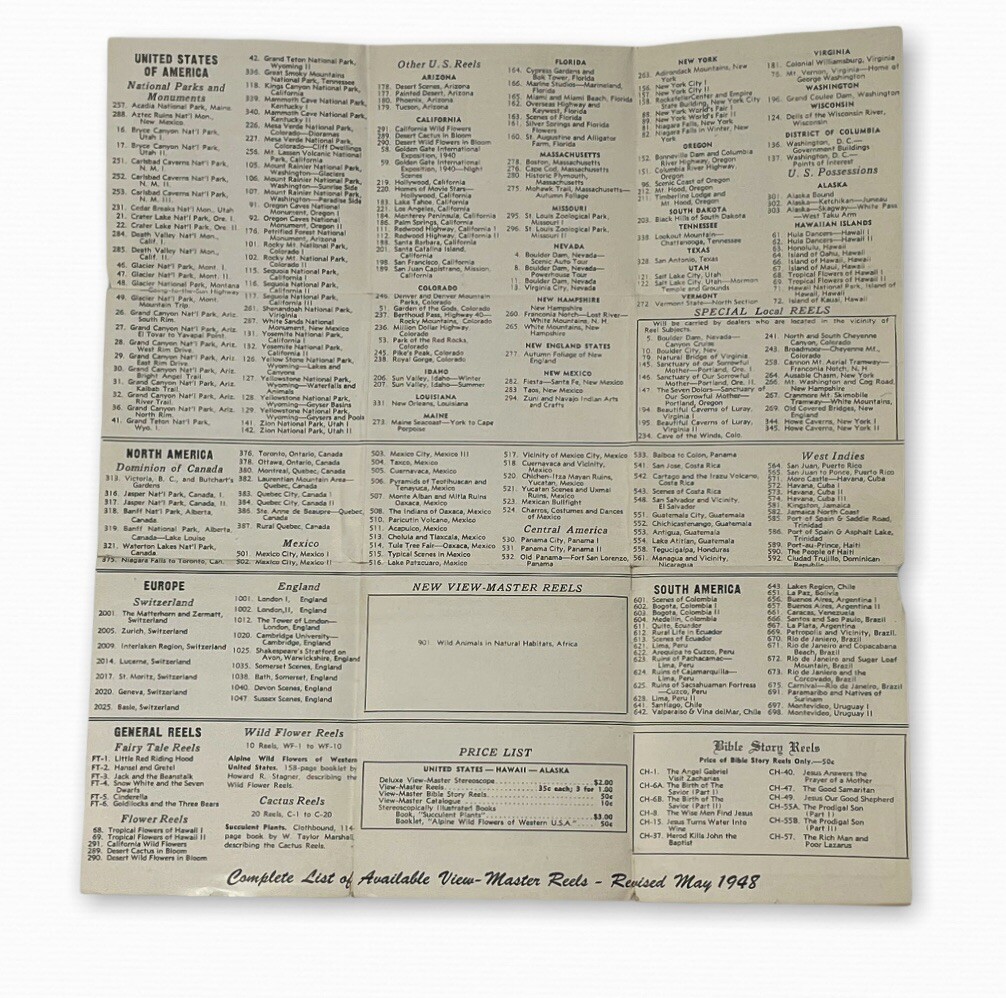 UNITED STATES
OF AMERICA
National Parks and
Monuments
257. Acadia National Park, Maine
288. Aztec Ruins Nat'l Mon.,
New Mexico
16. Bryce Canyon Nat'l Park,
Utah I
17. Bryce Canyon Nat'l Park,
Utah II.
251. Carlsbad Caverns Nat'l Park,
N. M. I
252. Carlsbad Caverns Nat'l Park,
N. M. II.
253. Carlsbad Caverns Nat'l Park,
N. M. III.
231. Cedar Breaks Nat'l Mon., Utah
21. Crater Lake Nat'l Park, Ore. I
22. Crater Lake Nat'l Park, Ore. II
284. Death Valley Nat'l Mon.,
Calif. I.
285. Death Valley Nat'l Mon.,
Calif. II.
46. Glacier Nat'l Park, Mont. I.
47. Glacier Nat'l Park, Mont. II.
48. Glacier National Park, Montana
—Going-to-the-Sun Highway
49. Glacier Nat'l Park, Mont.
Mountain Trip.
26. Grand Canyon Nat'l Park, Ariz.
South Rim.
27. Grand Canyon Nat'l Park, Ariz.
El Tovar to Yavapai Point.
28. Grand Canyon Nat'l Park, Ariz.
West Rim Drive.
29. Grand Canyon Nat'l Park, Ariz.
East Rim Drive.
30. Grand Canyon Nat'l Park, Ariz.
Bright Angel Trail
31. Grand Canyon Nat'l Park, Ariz.
Kaibab Trail.
32. Grand Canyon Nat'l Park, Ariz.
River Trail.
36. Grand Canyon Nat'l Park, Ariz.
North Rim.
41. Grand Teton Nat'l Park,
Wyo. I.
42. Grand Teton National Park,
Wyoming II
336. Great Smoky Mountains
National Park, Tennessee
118. Kings Canyon National Park,
California
339. Mammoth Cave National Park,
Kentucky I
340. Mammoth Cave National Park,
Kentucky II
226. Mesa Verde National Park,
Colorado—Dioramas
227. Mesa Verde National Park,
Colorado—Cliff Dwellings
Mt. Lassen Volcanic National
Park, California
105. Mount Rainier National Park,
Washington—Glaciers
106. Mount Rainier National Park,
Washington—Sunrise Side
107. Mount Rainier National Park,
Washington—Paradise Side
91. Oregon Caves National
Monument, Oregon I
92. Oregon Caves National
Monument, Oregon II
176. Petrified Forest National
Monument, Arizona
101. Rocky Mt. National Park,
Colorado I
102. Rocky Mt. National Park,
Colorado II
115. Sequoia National Park,
California I
116. Sequoia National Park,
California II
117. Sequoia National Park,
California III
261. Shenandoah National Park,
Virginia
287. White Sands National
Monument, New Mexico
131. Yosemite National Park,
California I
132. Yosemite National Park,
California II
126. Yellowstone National Park,
Wyoming—Lakes and
Canyons
127. Yellowstone National Park,
Wyoming—Waterfalls and
Animals
128. Yellowstone National Park,
Wyoming—Geyser Basins
129. Yellowstone National Park,
Wyoming—Geysers and Pools
141. Zion National Park, Utah I
142. Zion National Park, Utah II
Other U.S. Reels
ARIZONA
178. Desert Scenes, Arizona
177. Painted Desert, Arizona
180. Phoenix, Arizona
179. Tucson, Arizona
CALIFORNIA
291. California Wild Flowers
289. Desert Cactus in Bloom
290. Desert Wild Flowers in Bloom
58. Golden Gate International
Exposition, 1940
59. Golden Gate International
Exposition, 1940—Night
Scenes
219. Hollywood, California
220. Homes of Movie Stars—
Hollywood, California
183. Lake Tahoe, California
221. Los Angeles, California
184. Monterey Peninsula, California
186. Palm Springs, California
111. Redwood Highway, California I
112. Redwood Highway, California II
188. Santa Barbara, California
201. Santa Catalina Island,
California
198. San Francisco, California
189. San Juan Capistrano, Mission,
California
COLORADO
246. Denver and Denver Mountain
Parks, Colorado
51. Garden of the Gods, Colorado
237. Berthoud Pass, Highway 40—
Rocky Mountains, Colorado
236. Million Dollar Highway
Colorado
53. Park of the Red Rocks,
Colorado
245. Pike's Peak, Colorado
238. Royal Gorge, Colorado
IDAHO
206. Sun Valley, Idaho—Winter
207. Sun Valley, Idaho—Summer
LOUISIANA
331. New Orleans, Louisiana
MAINE
273. Maine Seacoast—York to Cape
Porpoise
FLORIDA
164. Cypress Gardens and
Bok Tower, Florida
166. Marine Studios—Marineland,
Florida
165. Miami and Miami Beach, Florida
162. Overseas Highway and
Keywest, Florida
163. Scenes of Florida
161. Silver Springs and Florida
Flowers
160. St. Augustine and Alligator
Farm, Florida
MASSACHUSETTS
278. Boston, Massachusetts
276. Cape Cod, Massachusetts
280. Historic Plymouth,
Massachusetts
275. Mohawk Trail, Massachusetts—
Autumn Foliage
MISSOURI
295. St. Louis Zoological Park,
Missouri I
296. St. Louis Zoological Park,
Missouri II
NEVADA
4. Boulder Dam, Nevada—
Scenic Auto Tour
8. Boulder Dam, Nevada—
Powerhouse Tour
11. Boulder Dam, Nevada
13. Virginia City, Nevada
NEW HAMPSHIRE
New Hampshire
260. Franconia Notch—Lost River—
White Mountains, N. H.
265. White Mountains, New
Hampshire
NEW ENGLAND STATES
277. Autumn Foliage of New
England
NEW MEXICO
282. Fiesta—Santa Fe, New Mexico
283. Taos, New Mexico
294. Zuni and Navajo Indian Arts
and Crafts
NEW YORK
263. Adirondack Mountains, New
York
156. New York City I
157. New York City II
158. Rockefeller Center and Empire
State Building, New York City
88. New York World's Fair I
89. New York World's Fair II
81. Niagara Falls, New York
82. Niagara Falls in Winter, New
York
OREGON
152. Bonneville Dam and Columbia
River Highway, Oregon
151. Columbia River Highway,
Oregon
96. Scenic Coast of Oregon
212. Mt. Hood, Oregon
211. Timberline Lodge and
Mt. Hood, Oregon
SOUTH DAKOTA
203. Black Hills of South Dakota
TENNESSEE
338. Lookout Mountain—
Chattanooga, Tennessee
TEXAS
328. San Antonio, Texas
UTAH
121. Salt Lake City, Utah
122. Salt Lake City, Utah—Mormon
Temple and Grounds
VERMONT
272. Vermont State—North Section
VIRGINIA
181. Colonial Williamsburg, Virginia
76. Mt. Vernon, Virginia—Home of
George Washington
WASHINGTON
196. Grand Coulee Dam, Washington
WISCONSIN
124. Dells of the Wisconsin River,
Wisconsin
DISTRICT OF COLUMBIA
136. Washington, D. C.—
Government Buildings
137. Washington, D. C.—
Points of Interest
U. S. Possessions
ALASKA
301. Alaska Bound
302. Alaska—Ketchikan—Juneau
303. Alaska—Skagway—White Pass
—West Taku Arm
HAWAIIAN ISLANDS
61. Hula Dancers—Hawaii I
62. Hula Dancers—Hawaii II
63. Honolulu, Hawaii
64. Island of Oahu, Hawaii
66. Island of Hawaii, Hawaii
67. Island of Maui, Hawaii
68. Tropical Flowers of Hawaii I
69. Tropical Flowers of Hawaii II
71. Hawaii National Park, Island of
Hawaii, Hawaii
72. Island of Kauai, Hawaii
SPECIAL Local REELS
Will be carried by dealers who are located in the vicinity of
Reel Subjects.
5. Boulder Dam, Nevada—
Canyon Cruise
10. Boulder City, Nev.
79. Natural Bridge of Virginia
145. Sanctuary of our Sorrowful
Mother—Portland, Ore. I
146. Sanctuary of our Sorrowful
Mother—Portland, Ore. II.
147. The Seven Dolors—Sanctuary of
Our Sorrowful Mother—
Portland, Oregon
194. Beautiful Caverns of Luray,
Virginia I
195. Beautiful Caverns of Luray,
Virginia II
234. Cave of the Winds, Colo.
241. North and South Cheyenne
Canyon, Colorado
243. Broadmoor—Cheyenne Mt.,
Colorado
258. Cannon Mt. Aerial Tramway—
Franconia Notch, N. H.
264. Ausable Chasm, New York
266. Mt. Washington and Cog Road,
New Hampshire
267. Cranmore Mt. Skimobile
Tramway—White Mountains,
269. Old Covered Bridges, New
England
344. Howe Caverns, New York I
345. Howe Caverns, New York II
NORTH AMERICA
Dominion of Canada
313. Victoria, B. C., and Butchart's
Gardens
316. Jasper Nat'l Park, Canada, I.
317. Jasper Nat'l Park, Canada, II
318. Banff Nat'l Park, Alberta,
Canada
319. Banff National Park, Alberta,
Canada—Lake Louise
321. Waterton Lakes Nat'l Park,
Canada.
375. Niagara Falls to Toronto, Can.
376. Toronto, Ontario, Canada
378. Ottawa, Ontario, Canada
380. Montreal, Quebec, Canada
382. Laurentian Mountain Area—
Quebec, Canada
383. Quebec City, Canada I
384. Quebec City, Canada II
386. Ste. Anne de Beaupre—Quebec,
Canada
387. Rural Quebec, Canada
Mexico
501. Mexico City, Mexico I
502. Mexico City, Mexico II
503. Mexico City, Mexico III
504. Taxco, Mexico
505. Cuernavaca, Mexico
506. Pyramids of Teotihuacan and
Tenayuca, Mexico
507. Monte Alban and Mitla Ruins
Oaxaca, Mexico
508. The Indians of Oaxaca, Mexico
510. Paricutin Volcano, Mexico
511. Acapulco, Mexico
513. Cholula and Tlaxcala, Mexico
514. Tule Tree Fair—Oaxaca, Mexico
515. Typical Scenes in Mexico
516. Lake Patzcuaro, Mexico
517. Vicinity of Mexico City, Mexico
518. Cuernavaca and Vicinity,
Mexico
520. Chichen-Itza Mayan Ruins,
Yucatan, Mexico
521. Yucatan Scenes and Uxmal
Ruins, Mexico
523. Mexican Bullfight
524. Charros, Costumes and Dances
of Mexico
Central America
530. Panama City, Panama I
531. Panama City, Panama II
532. Old Panama—Fort San Lorenzo,
Panama
533. Balboa to Colon, Panama
541. San Jose, Costa Rica
542. Cartago and the Irazu Volcano,
Costa Rica
543. Scenes of Costa Rica
548. San Salvador and Vicinity,
El Salvador
551. Guatemala City, Guatemala
552. Chichicastenango, Guatemala
553. Antigua, Guatemala
554. Lake Atitlan, Guatemala
558. Tegucigalpa, Honduras
561. Managua and Vicinity,
Nicaragua
West Indies
564. San Juan, Puerto Rico
565. San Juan to Ponce, Puerto Rico
571. Moro Castle—Havana, Cuba
572. Havana, Cuba I
573. Havana, Cuba II
574. Havana, Cuba III
581. Kingston, Jamaica
582. Jamaica North Coast
585. Port of Spain & Saddle Road,
Trinidad
586. Port of Spain & Asphalt Lake,
Trinidad
589. Port-au-Prince, Haiti
590. The People of Haiti
592. Ciudad Trujillo, Dominican
Republic
EUROPE
Switzerland
2001. The Matterhorn and Zermatt,
Switzerland
2005. Zurich, Switzerland
2009. Interlaken Region, Switzerland
2014. Lucerne, Switzerland
2017. St. Moritz, Switzerland
2020. Geneva, Switzerland
2025. Basle, Switzerland
England
1001. London I, England
1002. London, II, England
1012. The Tower of London—
London, England
1020. Cambridge University—
Cambridge, England
1025. Shakespeare's Stratford on
Avon, Warwickshire, England
1035. Somerset Scenes, England
1038. Bath, Somerset, England
1040. Devon Scenes, England
1047. Sussex Scenes, England
NEW VIEW-MASTER REELS
901. Wild Animals in Natural Habitats, Africa
SOUTH AMERICA
601. Scenes of Colombia
602. Bogota, Colombia I
603. Bogota, Colombia II
604. Medellin, Colombia
611. Quito, Ecuador
612. Rural Life in Ecuador
613. Scenes of Ecuador
621. Lima, Peru
622. Arequipa to Cuzco, Peru
623. Ruins of Pachacamac—
Lima, Peru
624. Ruins of Cajamarquilla—
Lima, Peru
625. Ruins of Sacsahuaman Fortress
—Cuzco, Peru
628. Lima, Peru II
641. Santiago, Chile
642. Valparaiso & Vina delMar, Chile
643. Lakes Region, Chile
651. La Paz, Bolivia
656. Buenos Aires, Argentina I
657. Buenos Aires, Argentina II
661. Caracas, Venezuela
666. Santos and Sao Paulo, Brazil
667. La Plata, Argentina
669. Petropolis and Vicinity, Brazil.
670. Rio de Janeiro, Brazil
671. Rio de Janeiro and Copacabana
Beach, Brazil
672. Rio de Janeiro and Sugar Loaf
Mountain, Brazil
673. Rio de Janeiro and the
Corcovado, Brazil
675. Carnival—Rio de Janeiro, Brazil
691. Paramaribo and Natives of
Surinam
697. Montevideo, Uruguay I
698. Montevideo, Uruguay II
GENERAL REELS
Fairy Tale Reels
FT-1. Little Red Riding Hood
FT-2. Hansel and Gretel
FT-3. Jack and the Beanstalk
FT-4. Snow White and the Seven
Dwarfs
FT-5. Cinderella
FT-6. Goldilocks and the Three Bears
Flower Reels
68. Tropical Flowers of Hawaii I
69. Tropical Flowers of Hawaii II
291. California Wild Flowers
289. Desert Cactus in Bloom
290. Desert Wild Flowers in Bloom
Wild Flower Reels
10 Reels, WF-1 to WF-10
Alpine Wild Flowers of Western
United States. 158-page booklet by
Howard R. Stagner, describing the
Wild Flower Reels.
Cactus Reels
20 Reels, C-1 to C-20
Succulent Plants. Clothbound, 114-
page book by W. Taylor Marshall,
describing the Cactus Reels.
PRICE LIST
UNITED STATES — HAWAII — ALASKA
Deluxe View-Master Stereoscope $2.00
View-Master Reels 35c each; 3 for 1.00
View-Master Bible Story Reels 50c
View-Master Catalogue 10c
Stereoscopically Illustrated Books
Book, "Succulent Plants" $3.00
Booklet, "Alpine Wild Flowers of Western U.S.A." 50c
Bible Story Reels
Price of Bible Story Reels Only—50c
CH-1. The Angel Gabriel
Visit Zacharias
CH-6A. The Birth of The
Savior (Part I)
CH-6B. The Birth of The
Savior (Part II)
CH-8. The Wise Men Find Jesus
CH-15. Jesus Turns Water Into
Wine
CH-37. Herod Kills John the
Baptist
CH-40. Jesus Answers the
Prayer of a Mother
CH-47. The Good Samaritan
CH-49. Jesus Our Good Shepherd
CH-55A. The Prodigal Son
(Part I)
CH-55B. The Prodigal Son
(Part II)
CH-57. The Rich Man and
Poor Lazarus
Complete List of Available View-Master Reels - Revised May 1948